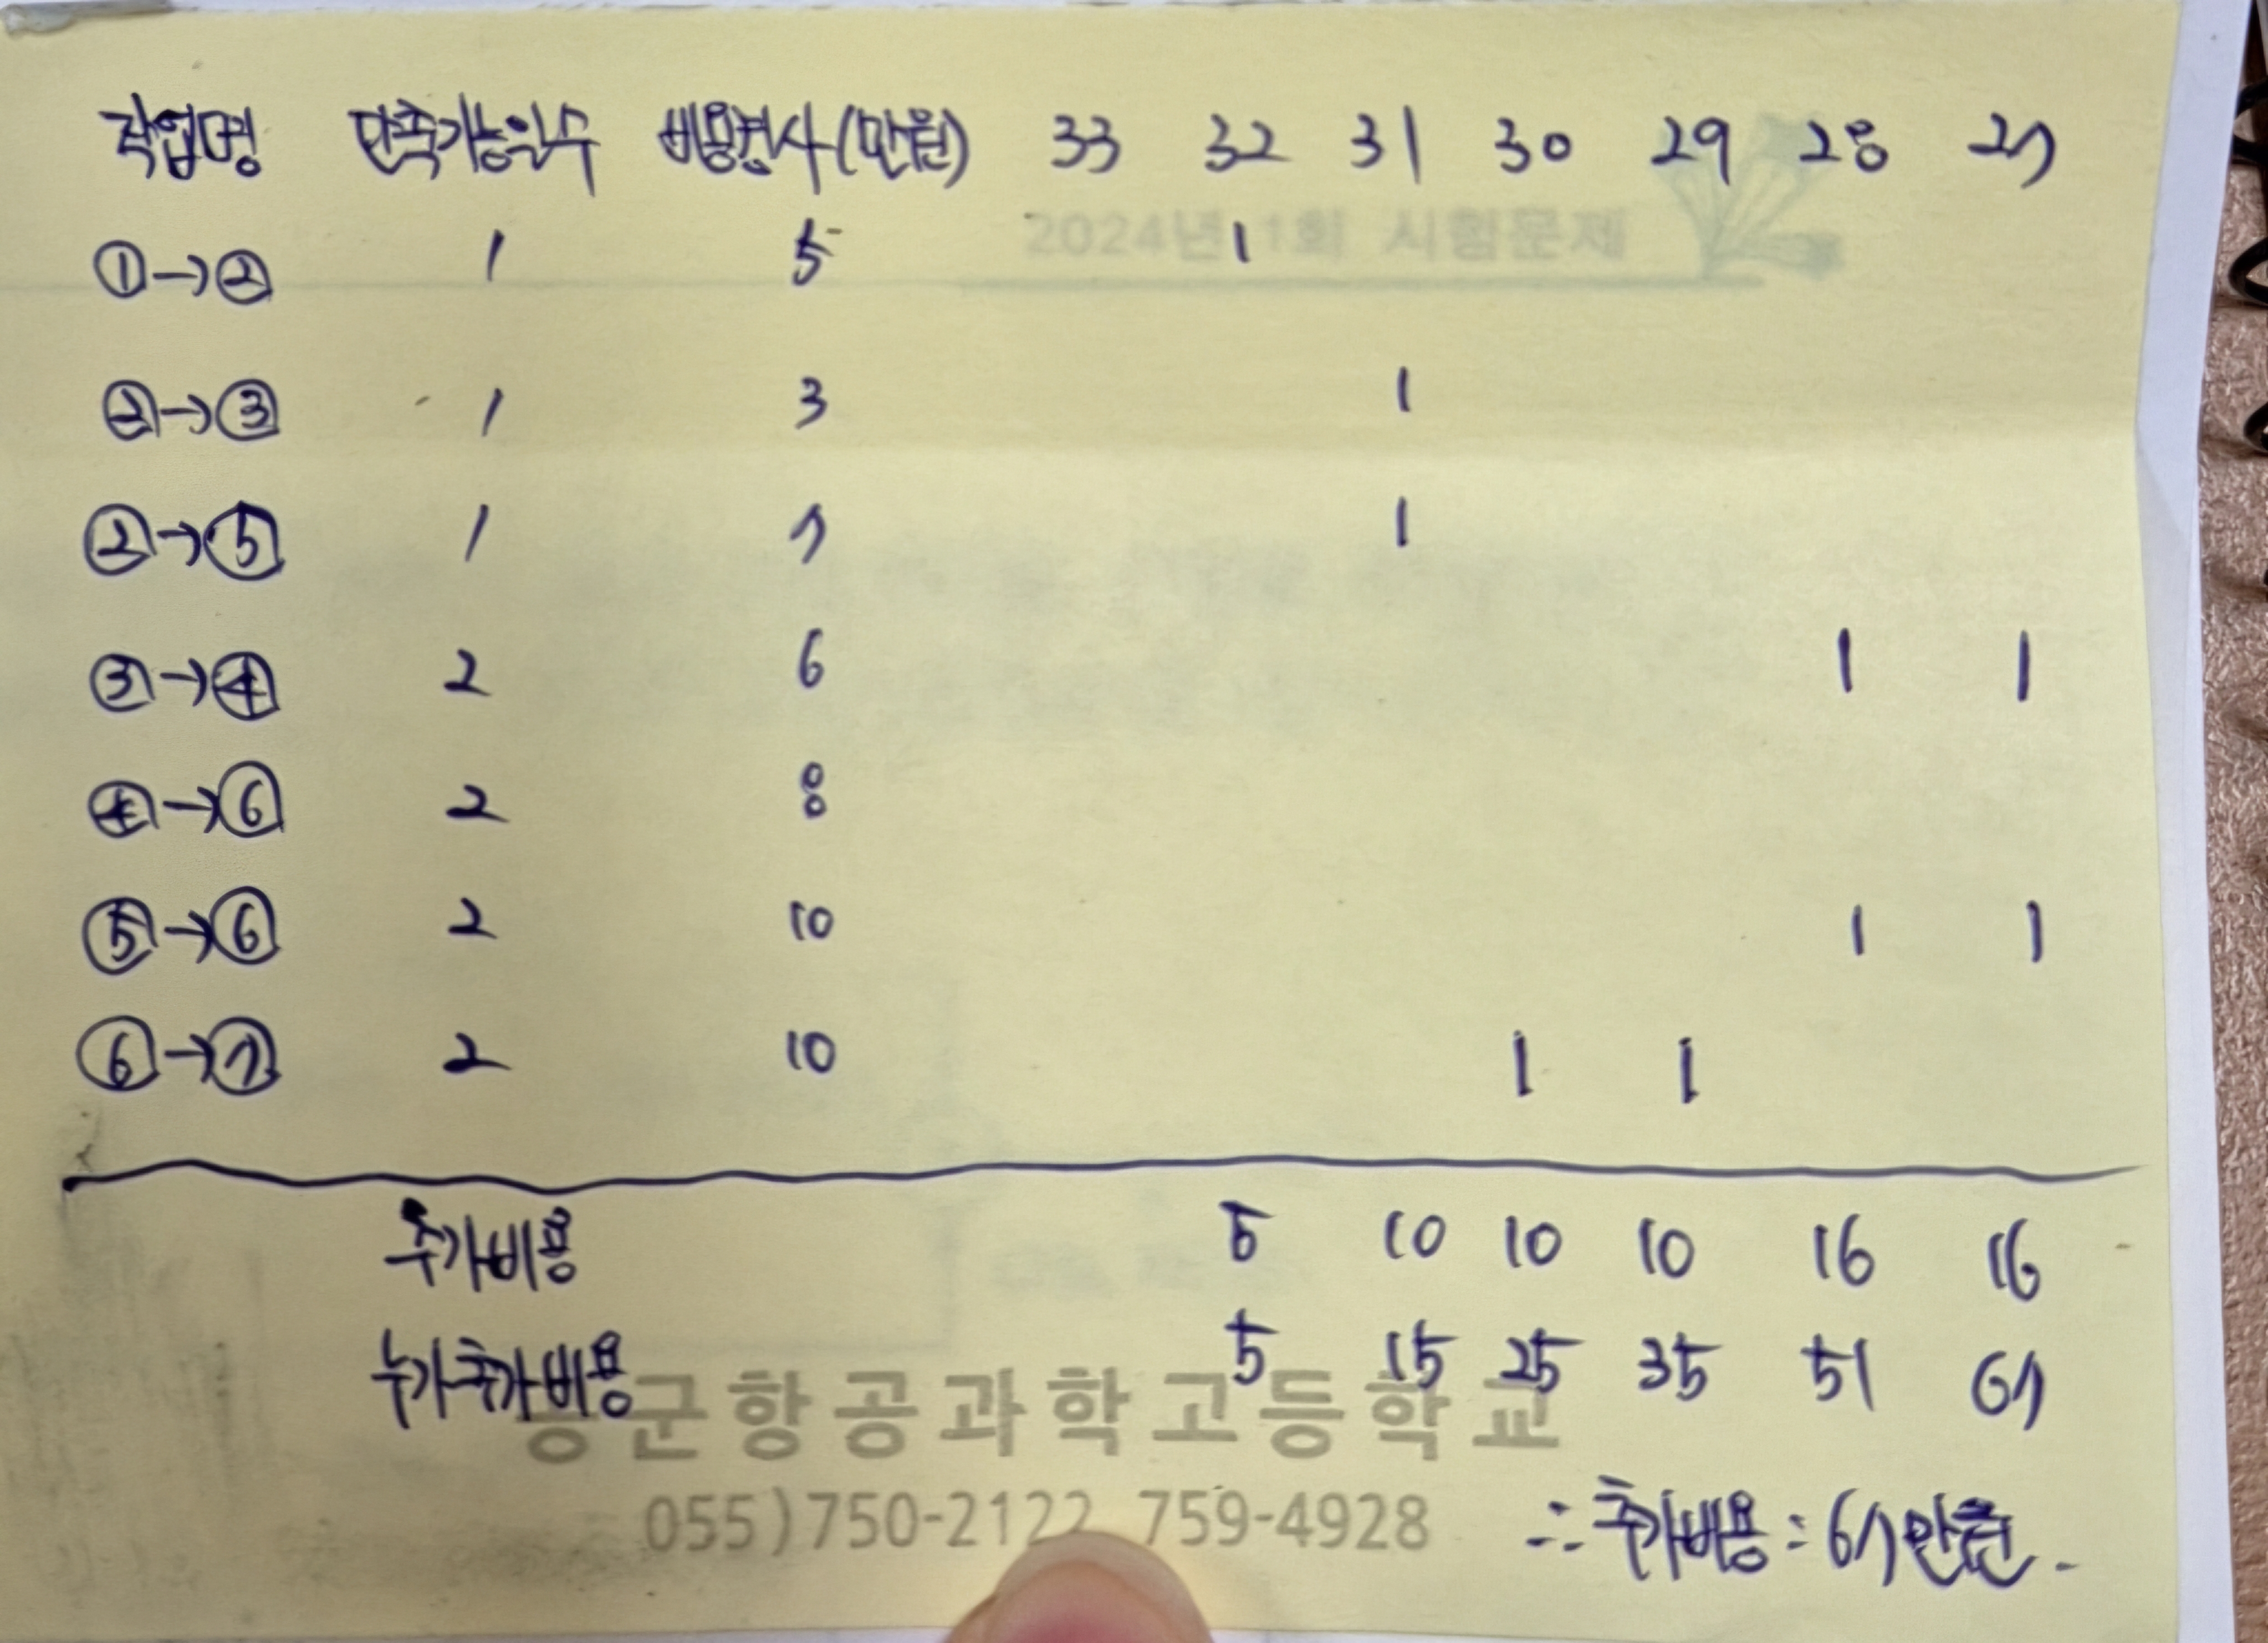 작업명 단축가능일수 비용경사(만원) 33 32 31 30 29 28 27
2024년 1회 시험문제
①→② 1 5 1
②→③ 1 3 1
②→⑤ 1 7 1
③→④ 2 6 1 1
④→⑥ 2 8
⑤→⑥ 2 10 1 1
⑥→⑦ 2 10 1 1
추가비용 5 10 10 10 16 16
누가추가비용 5 15 25 35 51 67
공군항공과학고등학교
055)750-2122 759-4928
∴ 추가비용 : 67만원.